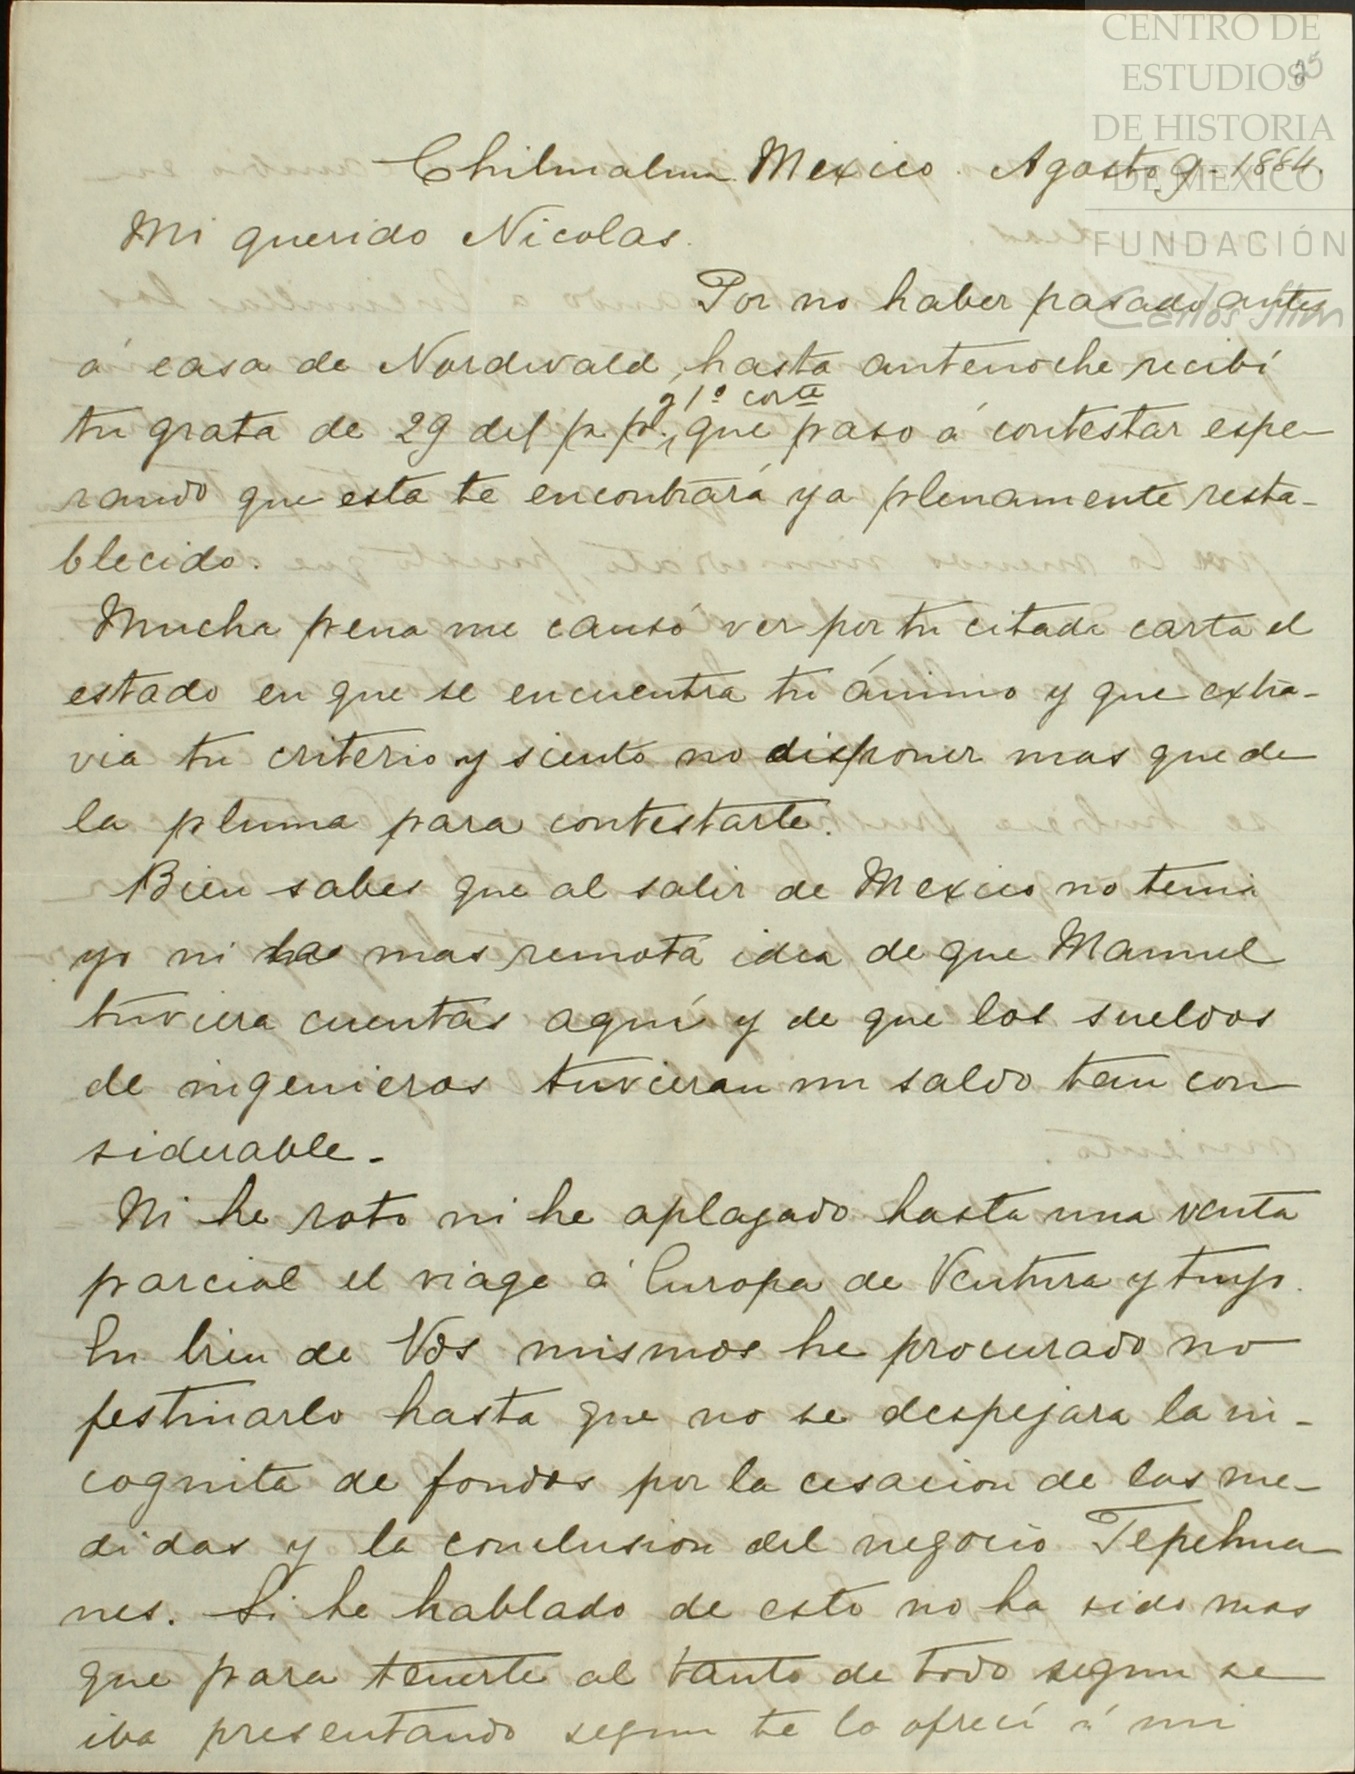 CENTRO DE
ESTUDIOS
DE HISTORIA
DE MEXICO
FUNDACIÓN
Carlos Slim
25
Chihuahua Mexico. Agosto 9. 1884.
Mi querido Nicolas.
Por no haber pasado antes
á casa de Nordwald, hasta antenoche recibí
y 1º corte
tu grata de 29 del p. pº., que paso á contestar espe-
rando que esta te encontrará ya plenamente resta-
blecido.
Mucha pena me causó ver por tu citada carta el
estado en que se encuentra tu ánimo y que extra-
via tu criterio y siento no disponer mas que de
la pluma para contestarte.
Bien sabes que al salir de Mexico no tenia
yo ni la mas remota idea de que Manuel
tuviera cuentas aquí y de que los sueldos
de ingenieros tuvieran un saldo tan con
siderable.
Ni he roto ni he aplazado hasta una venta
parcial el viage á Europa de Ventura y tuyo.
En bien de Vds mismos he procurado no
festinarlo hasta que no se despejara la in-
cognita de fondos por la cesacion de las me-
didas y la conclusion del negocio Tepehua-
nes. Si he hablado de esto no ha sido mas
que para tenerte al tanto de todo segun se
iba presentando segun te lo ofrecí á mi